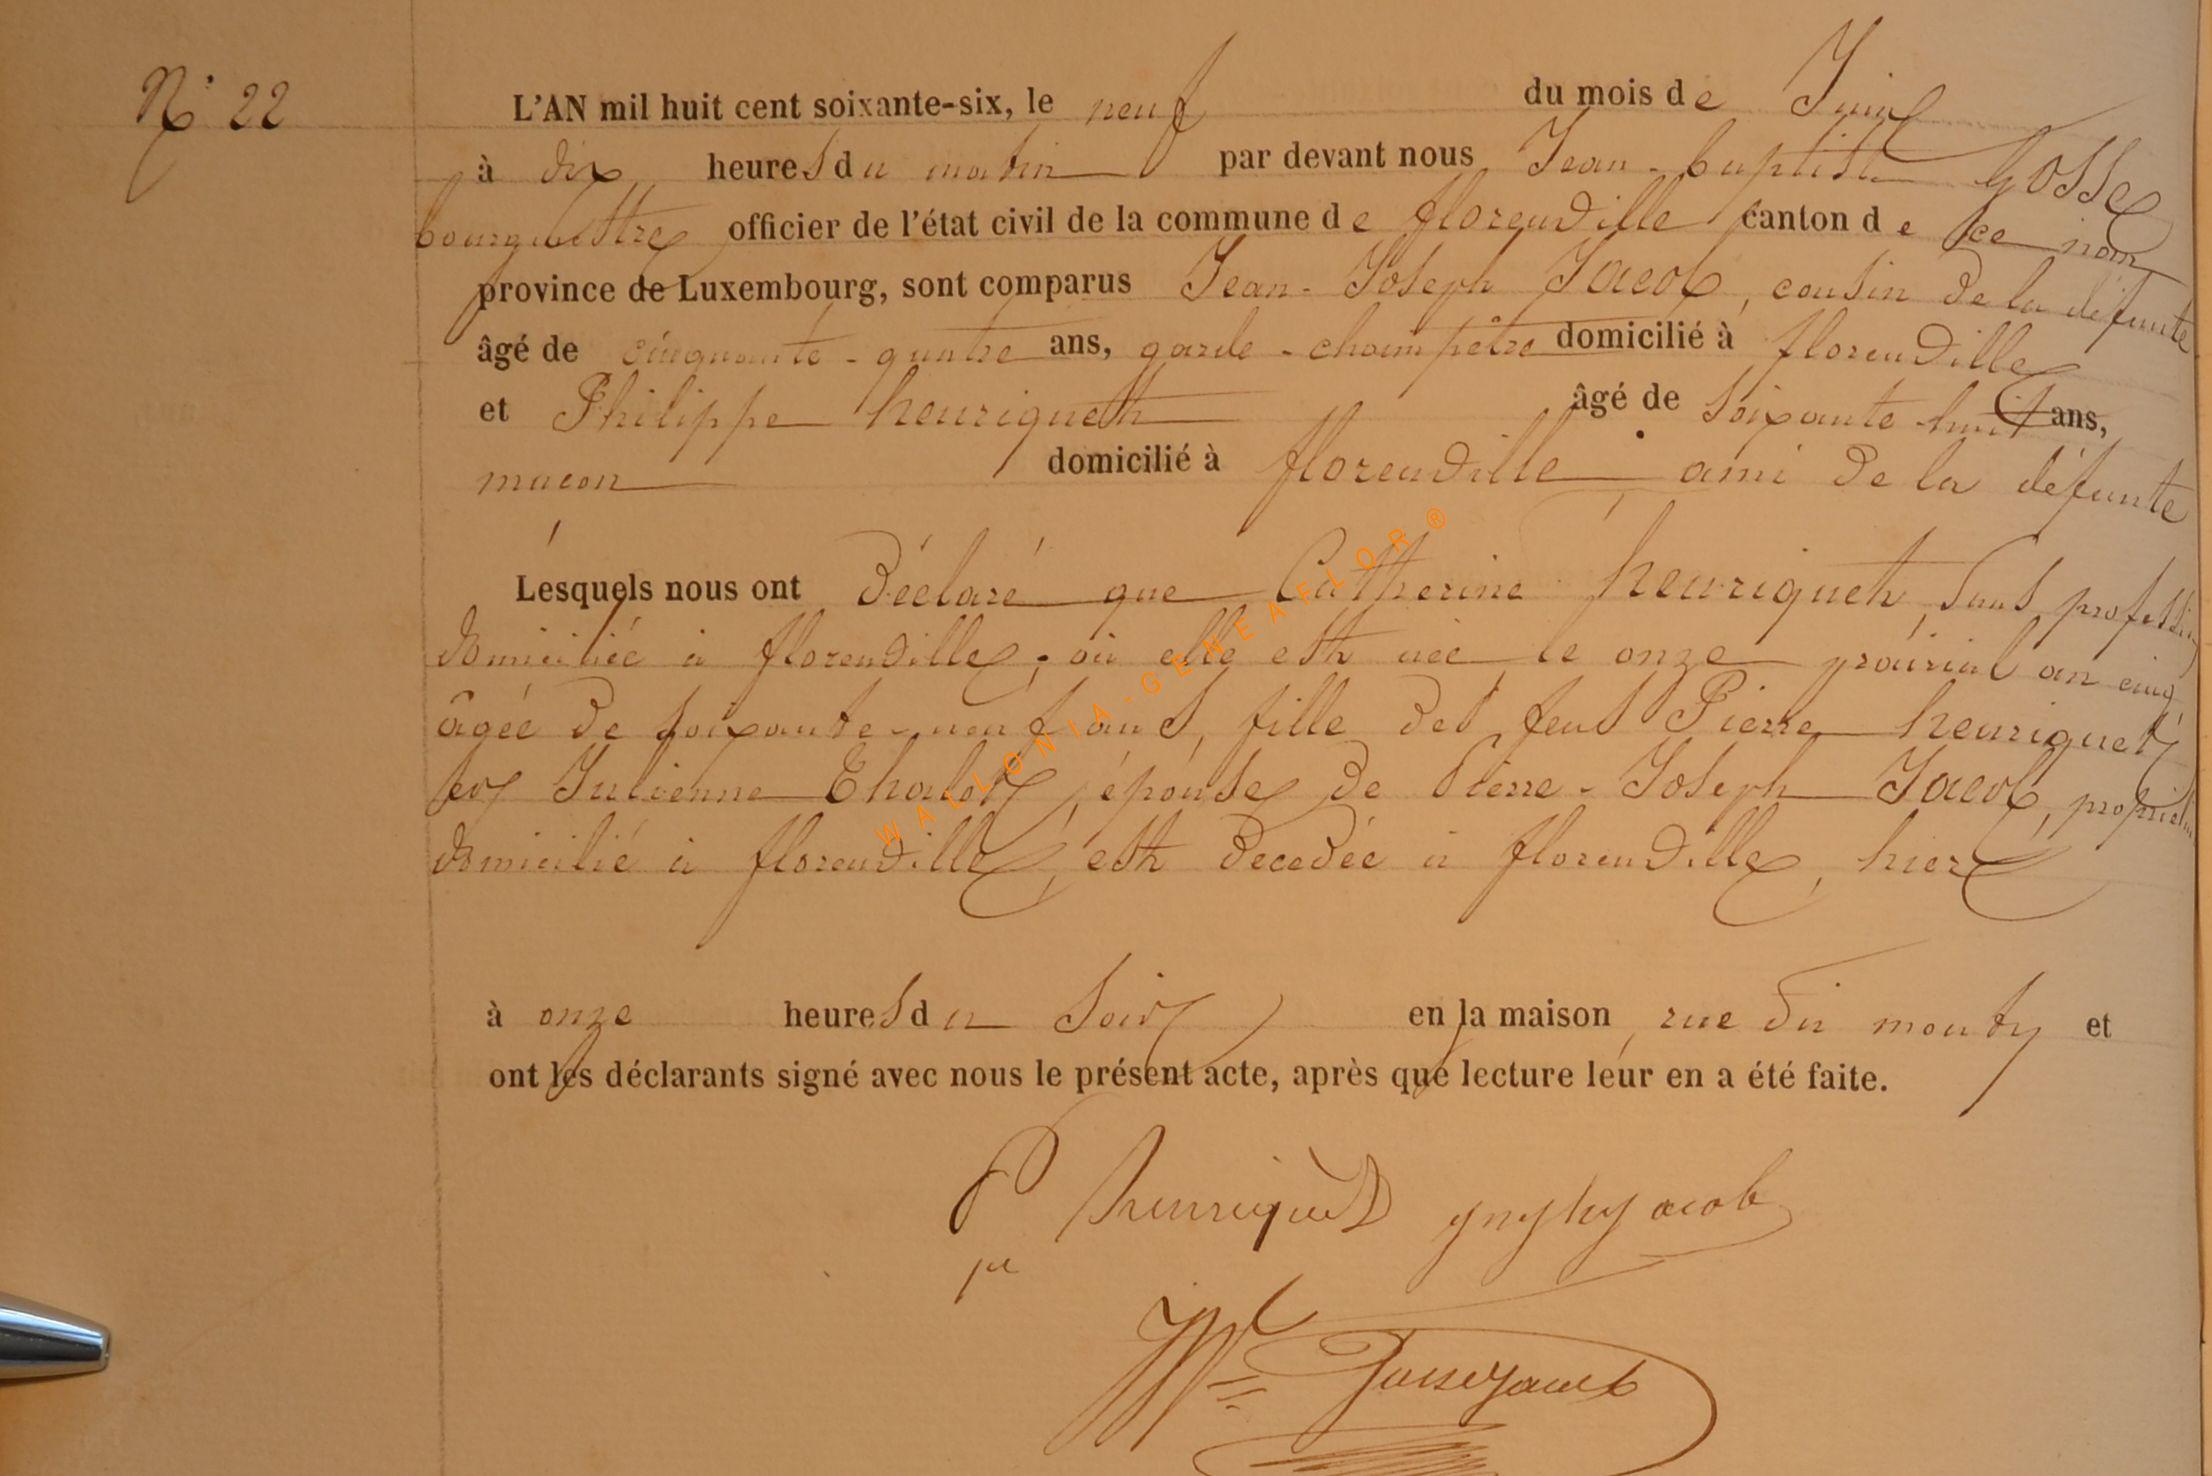 N° 22
L'AN mil huit cent soixante-six, le neuf du mois de Juin
à dix heures du matin par devant nous Jean-baptiste Gosse
bourgmestre officier de l'état civil de la commune de florenville canton de ce nom
province de Luxembourg, sont comparus Jean-Joseph Jacob, cousin de la défunte
âgé de cinquante-quatre ans, garde-champêtre domicilié à florenville
et Philippe henriquet âgé de soixante-huit ans,
macon domicilié à florenville ami de la défunte
Lesquels nous ont déclaré que Catherine henriquet, sans profession
domiciliée à florenville, où elle est née le onze prairial an cinq
âgée de soixante-neuf ans, fille des feus Pierre henriquet
et Julienne Chalot, épouse de Pierre-Joseph Jacob, propriétaire
domicilié à florenville, est décédée à florenville, hier
à onze heures du soir en la maison, rue du monty et
ont les déclarants signé avec nous le présent acte, après que lecture leur en a été faite.
P henriquet Jacob
WALLONIA-GENEAFLOR®